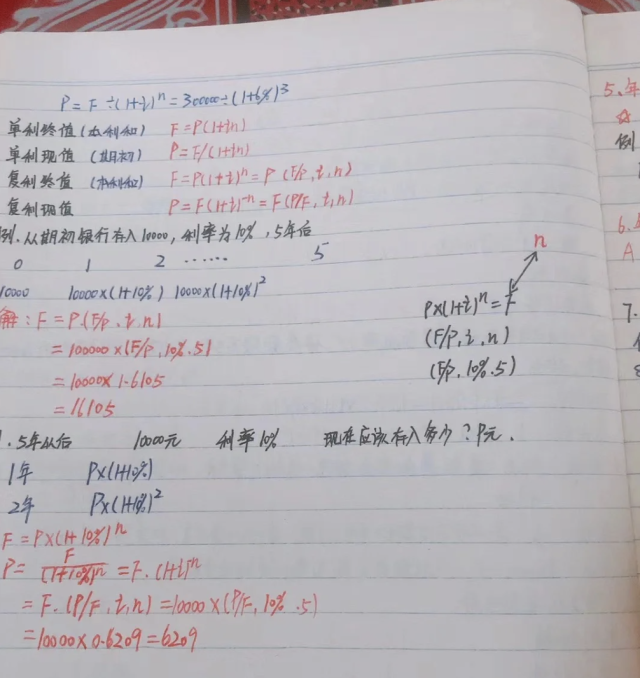 P = F ÷(1+i)ⁿ = 300000÷(1+6%)³
单利终值(本利和) F=P(1+in)
单利现值(期初) P=F/(1+in)
复利终值(本利和) F=P(1+i)ⁿ=P(F/P,i,n)
复利现值 P=F(1+i)⁻ⁿ=F(P/F,i,n)
例.从期初银行存入10000,利率为10%,5年后
0 1 2 …… 5
10000 10000×(1+10%) 10000×(1+10%)²
解:F=P.(F/P.i.n)
=100000×(F/P.10%.5)
=10000×1.6105
=16105
n
P×(1+i)ⁿ=F
(F/P,i,n)
(F/P.10%.5)
.5年从后 10000元 利率10% 现在应该存入多少?P元.
1年 P×(1+10%)
2年 P×(1+10%)²
F=P×(1+10%)ⁿ
P= F/(1+10%)ⁿ =F.(1+i)ⁿ
=F.(P/F,i,n)=10000×(P/F,10%.5)
=10000×0.6209=6209
5.年
例
6.
A
7.